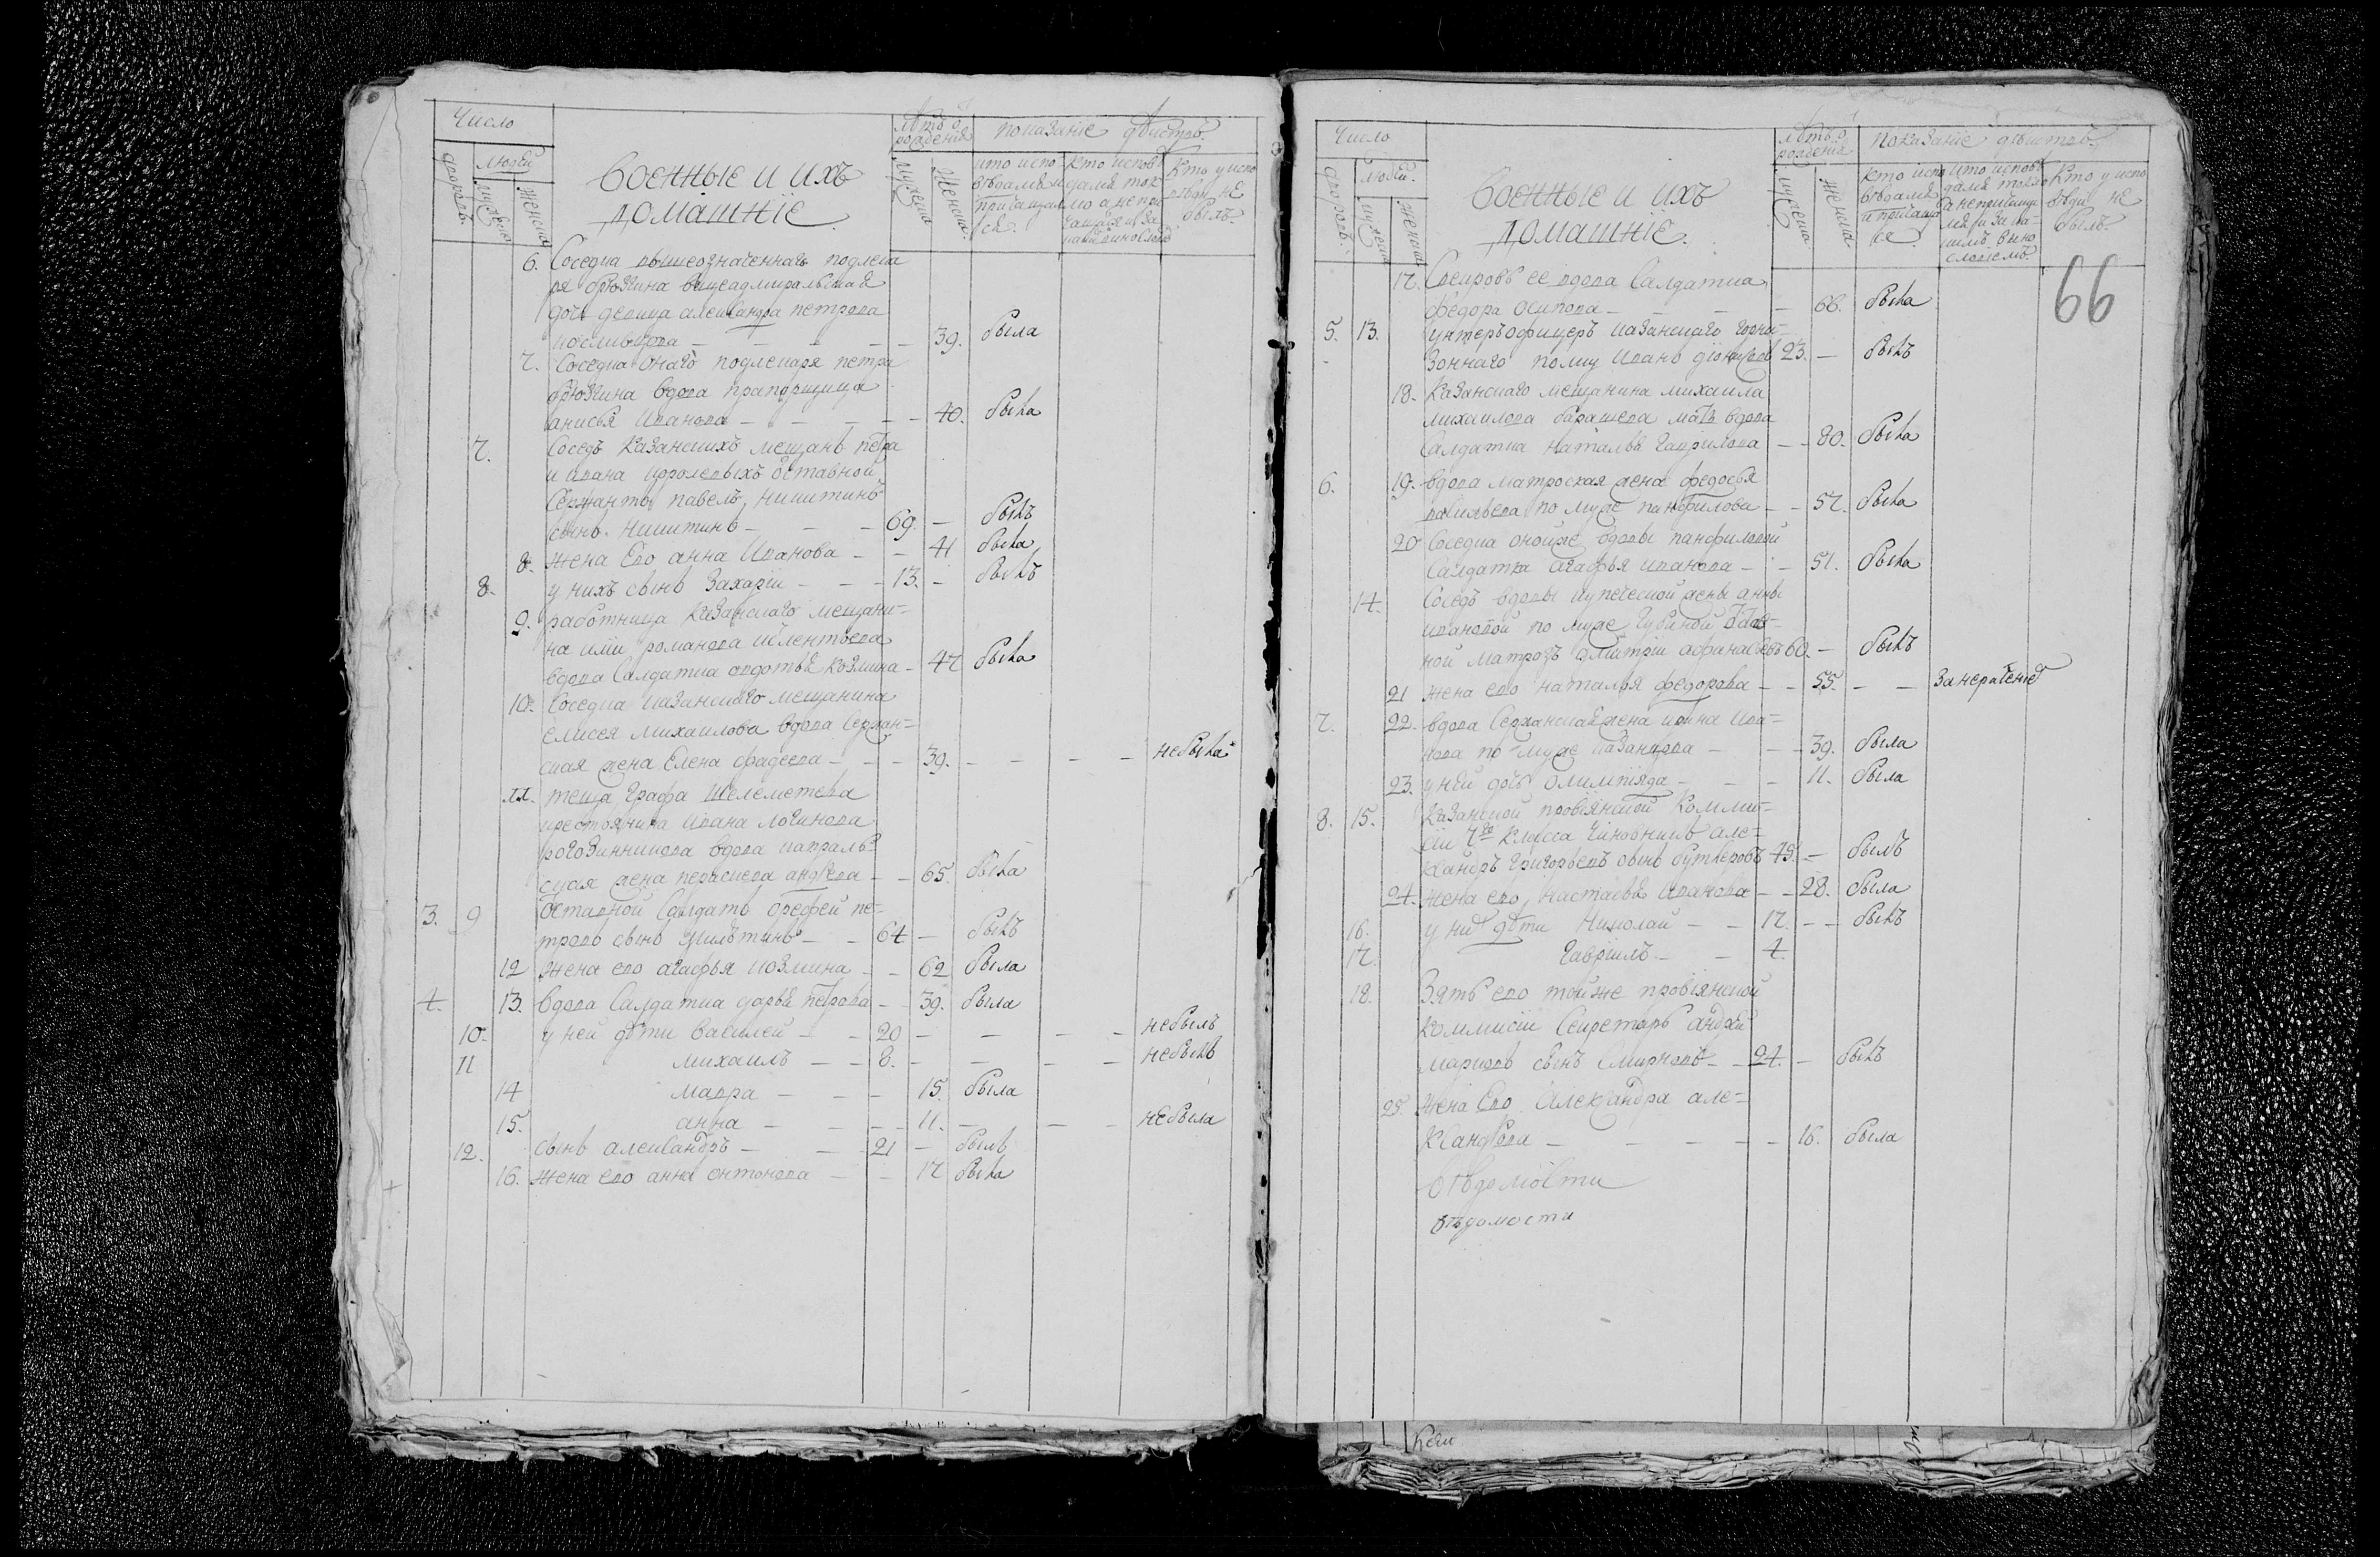 Число
Лѣтъ о
рожденія
показаніе дѣистов
людей
дворовъ.
мужеска
женска
Военные и ихъ
домашніе
мужеска
женска
кто испо
вѣдался и
причащал
ся.
Кто у испо
вѣди не
былъ.
6. Соседка вышеозначеннаго подлека
ря брюзгина вицеадмиральская
дочь девица александра петрова
— — — — 39. была
7. Соседка онаго подлекаря петра
брюзгина вдова прапорщица
анисья Иванова — — — — 40. была
7. Соседъ казанскихъ мещанъ петра
и ивана фролевыхъ оставной
Сержантъ павелъ никитинъ
сынъ никитинъ — — — 69. — былъ
8. жена Его анна Иванова — — 41 была
8. у нихъ сынъ Захаріи — — — 13. — былъ
9. работница казанскаго мещани=
на романова
вдова Салдатка авдотья козмина — 47 была
10. Соседка казанскаго мещанина
елисея михаилова вдова Сержан=
ская жена Елена фадеева — — — 39. — — — — небыла
11. теща графа Шелеметева
крестьянина ивана логинова
рогозинникова вдова капраль=
ская жена андреева — — 65. была
3. 9 Оставной Салдатъ орефей пе=
трово сынъ — — 64 — былъ
12 жена ево агафья козмина — — 62 была
4. 13. вдова Салдатка дарья петрова — — 39. была
10. у ней дѣти василей — — 20 — — — — небылъ
11 михаилъ — — 8. — — — — небылъ
14 мавра — — — 15. была
15. анна — — — 11. — — — небыла
12. сынъ александръ — — — 21 — былъ
16. жена ево анна онтонова — — 17 была
Число
лѣтъ о
рожденія
показаніе дѣистов
людей.
дворовъ.
мужеска
женска
Военные и ихъ
домашніе.
мужеска
женска
кто испо
вѣдался
и причаща
ся
кто испове
дался токмо
а непричаща
лся и за ка
кимъ вино
словіемъ
кто у испо
вѣди не
былъ.
66
17. Свекровь ее вдова Салдатка
федора осипова — — — — 66. была
5. 13. унтеръофицеръ казанскаго гарни=
зоннаго полку иванъ 23. — былъ
18. казанскаго мещанина михаила
михаилова барашева мать вдова
Салдатка наталья гаврилова — — 80. была
6. 19. вдова матроская жена федосья
васильева по муже панфилова — — 57. была
20 Соседка онойже вдовы панфиловой
Салдатка агафья иванова — — 51. была
14. Соседъ вдовы купеческой жены анны
ивановой по муже губиной Оста=
ной матрозъ дмитріи афанасьевъ 60. — былъ
21 жена ево наталья федорова — — 55. — — занерачение
7. 22. вдова Сержанская жена ирина ива=
нова по муже казанцова — — — 39. была
23. у ней дочь олимпіяда — — — 11. была
8. 15. казанской провіянской коммис=
сіи 7го класса чиновникъ але=
ксандръ григорьевъ сынъ бутлеровъ 45. — былъ
24. жена ево настасья иванова — — 28. была
16. у них дѣти Николай — — 12. — — былъ
17. гавріилъ — — 4.
18. Зять ево тойже провіянской
коммисіи Секретарь андрей
марковъ сынъ смирновъ — — 24. — былъ
25. жена Ево Александра але=
ксандрова — — — — — 16. была
вѣдомости
вѣдомости